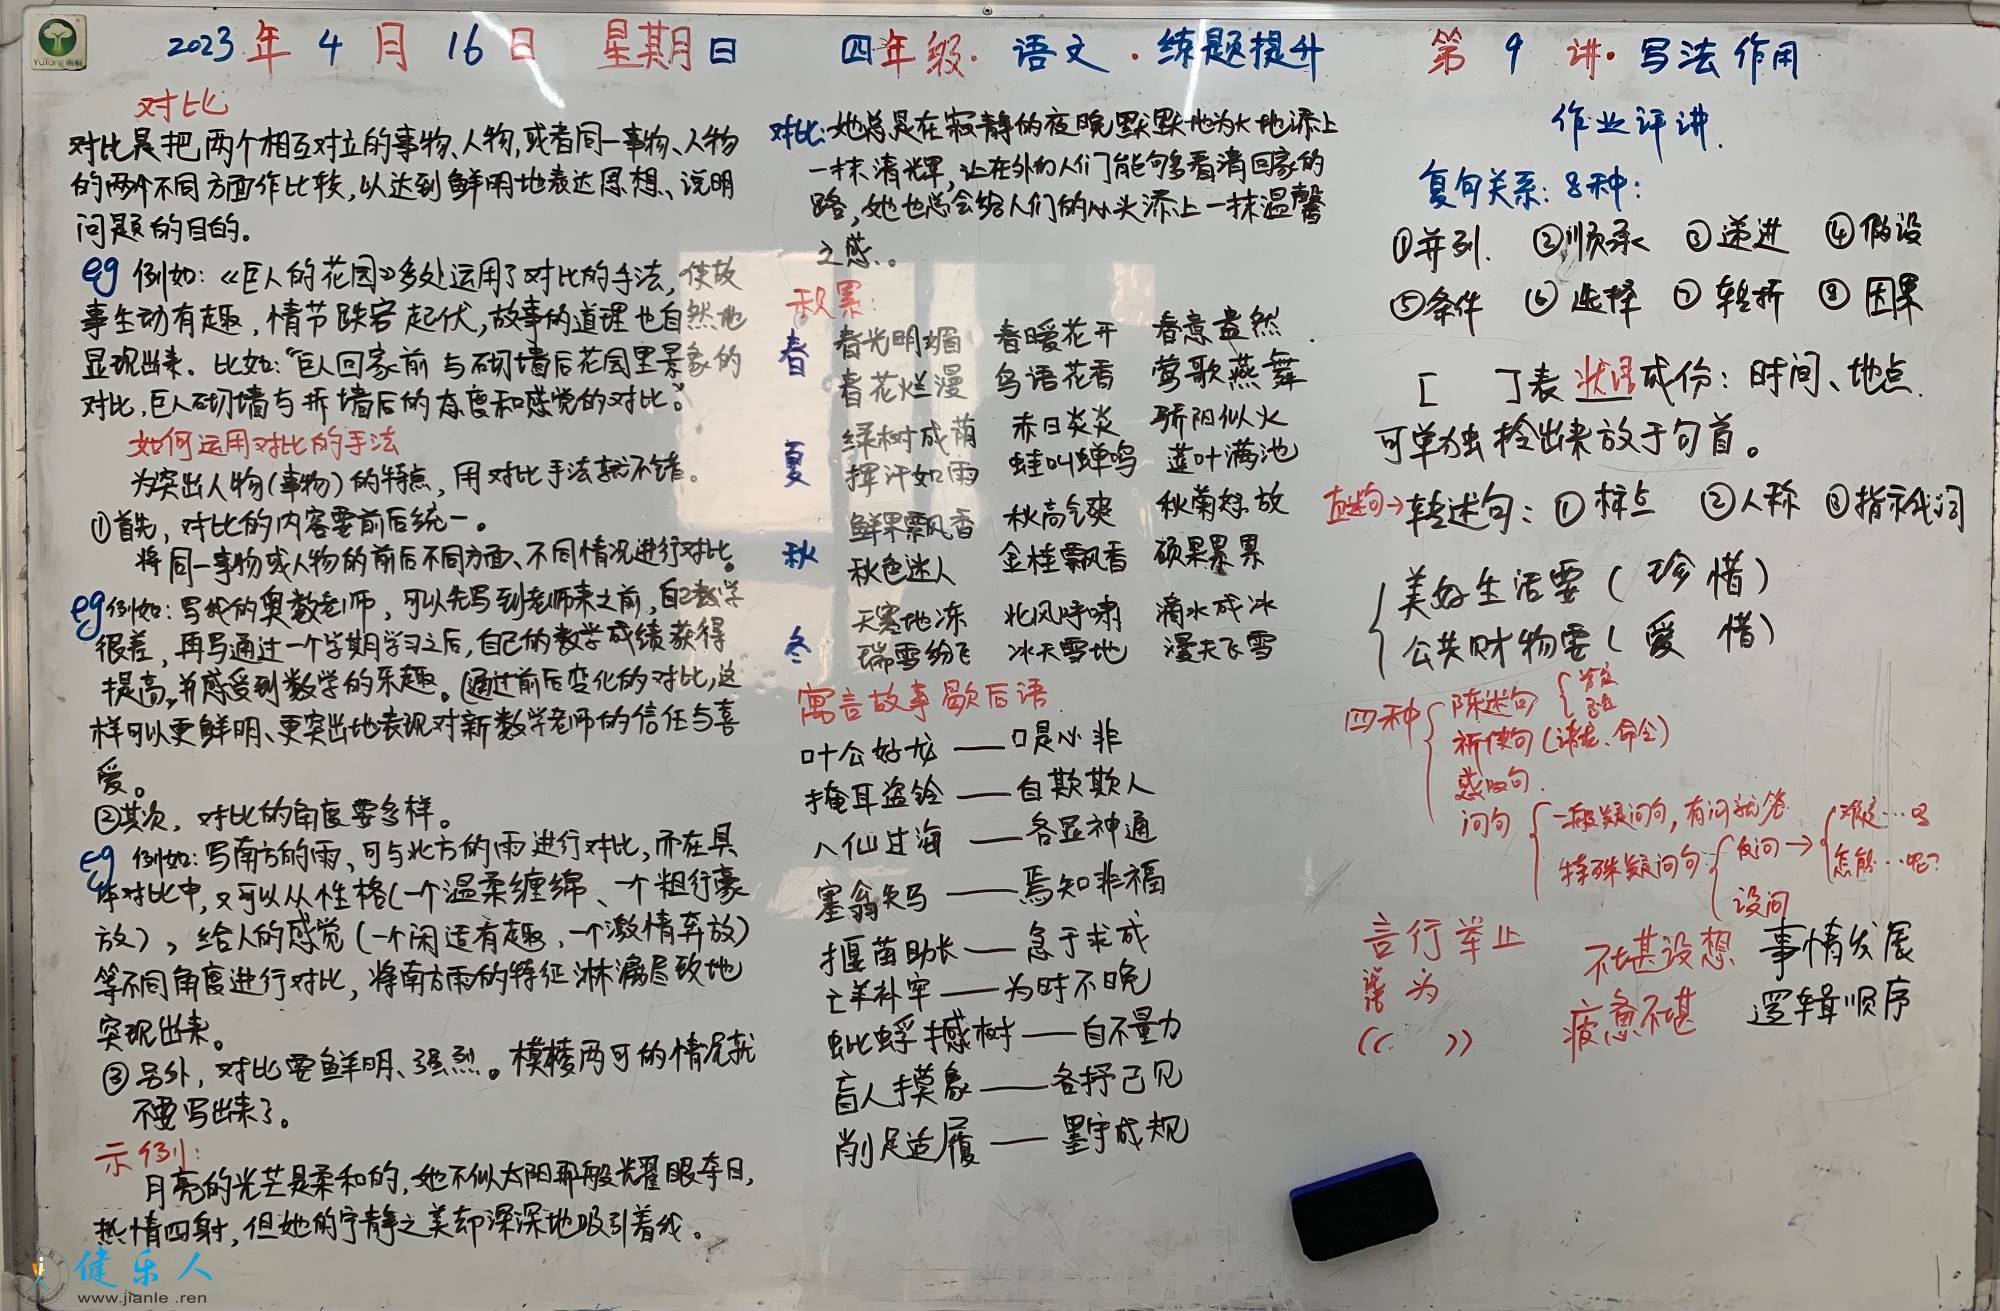 2023年4月16日 星期日 四年级·语文·练题提升 第9讲·写法作用
对比
对比是把两个相互对立的事物、人物,或者同一事物、人物
的两个不同方面作比较,以达到鲜明地表达思想、说明
问题的目的。
eg 例如:《巨人的花园》多处运用了对比的手法,使故
事生动有趣,情节跌宕起伏,故事的道理也自然地
显现出来。比如:“巨人回家前与砌墙后花园里景象的
对比,巨人砌墙与拆墙后的态度和感觉的对比。”
如何运用对比的手法
为突出人物(事物)的特点,用对比手法就不错。
①首先,对比的内容要前后统一。
将同一事物或人物的前后不同方面、不同情况进行对比。
eg 例如:写我的奥数老师,可以先写到老师来之前,自己数学
很差,再写通过一个学期学习之后,自己的数学成绩获得
提高,并感受到数学的乐趣。(通过前后变化的对比,这
样可以更鲜明、更突出地表现对新数学老师的信任与喜
爱。
②其次,对比的角度要多样。
Eg 例如:写南方的雨,可与北方的雨进行对比,而在具
体对比中,又可以从性格(一个温柔缠绵、一个粗行豪
放),给人的感觉(一个闲适有趣,一个激情奔放)
等不同角度进行对比,将南方雨的特征淋漓尽致地
突现出来。
③另外,对比要鲜明、强烈。模棱两可的情况就
不要写出来了。
示例:
月亮的光芒是柔和的,她不似太阳那般光耀眼夺目,
热情四射,但她的宁静之美却深深地吸引着我。
对比:她总是在寂静的夜晚默默地为大地添上
一抹清辉,让在外的人们能够看清回家的
路,她也总会给人们的心头添上一抹温馨
之感。
积累:
春 春光明媚 春暖花开 春意盎然
春花烂漫 鸟语花香 莺歌燕舞
夏 绿树成荫 赤日炎炎 骄阳似火
挥汗如雨 蛙叫蝉鸣 莲叶满池
秋 鲜果飘香 秋高气爽 秋菊怒放
秋色迷人 金桂飘香 硕果累累
冬 天寒地冻 北风呼啸 滴水成冰
瑞雪纷飞 冰天雪地 漫天飞雪
寓言故事歇后语
叶公好龙——口是心非
掩耳盗铃——自欺欺人
八仙过海——各显神通
塞翁失马——焉知非福
揠苗助长——急于求成
亡羊补牢——为时不晚
蚍蜉撼树——自不量力
盲人摸象——各抒己见
削足适履——墨守成规
作业评讲.
复句关系:8种:
①并列. ②顺承 ③递进 ④假设
⑤条件 ⑥选择 ⑦转折 ⑧因果
[ ]表状语成份:时间、地点.
可单独拎出来放于句首。
直述句→转述句:①标点 ②人称 ③指示代词
美好生活要(珍惜)
公共财物要(爱惜)
四种 陈述句
祈使句(请求、命令)
感叹句.
问句 一般疑问句,有问就答
特殊疑问句 反问→ 难道…吗
怎能…呢?
设问
言行举止
为
(( ))
不堪设想
疲惫不堪
事情发展
逻辑顺序
健乐人
www.jianle.ren